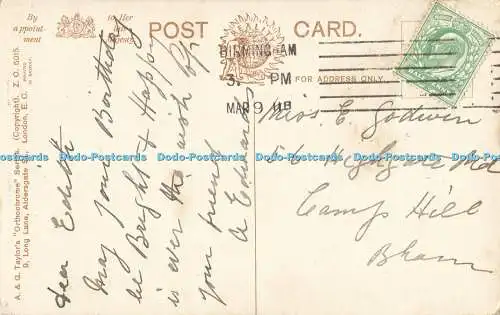 By
appoint-
ment
to Her
late
Majesty.
POST CARD.
FOR ADDRESS ONLY.
BIRMINGHAM
3. PM
MAR 9
A. & G. Taylor's "Orthochrome" Series. (Copyright). Z. O. 5015.
9, Long Lane, Aldersgate St., London, E.C.
Dear Edith
May your Birthday
be Bright & Happy
is ever the wish of
your friend
A Edwards
Miss E. Godwin
Highgate Rd
Camp Hill
Bham
Dodo-Postcards Dodo-Postcards Dodo-Postcards Dodo-Postcards Dodo-Postcards Dodo-Postcards